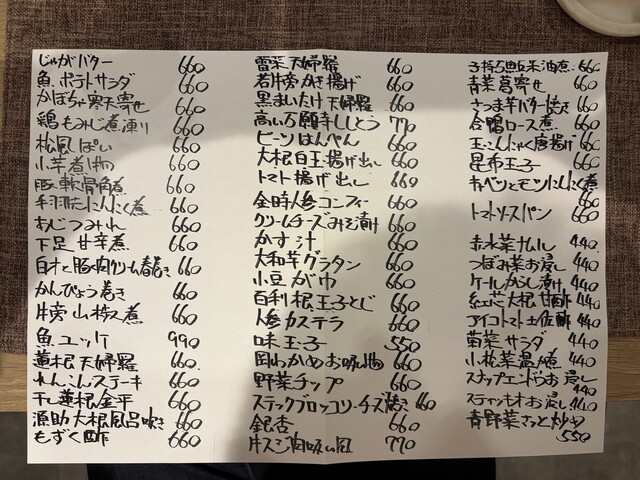 じゃがバター 660
魚ポテトサラダ 660
かぼちゃ寒天寄せ 660
鶏もみじ煮凍り 660
松風ぱい 660
小芋煮物 660
豚軟骨角煮 660
手羽元にんにく煮 660
あじつみれ 660
下足甘辛煮 660
白才と豚肉クリーム春巻き 660
かんぴょう巻き 660
牛蒡山椒煮 660
魚ユッケ 990
蓮根天婦羅 660
れんこんステーキ 660
干し蓮根金平 660
漁助大根風呂吹き 660
もずく酢 660
雪菜天婦羅 660
若牛蒡かき揚げ 660
黒まいたけ天婦羅 660
高い万願寺ししとう 770
ビーンはんぺん 660
大根白玉揚げ出し 660
トマト揚げ出し 660
金時人参コンフィー 660
クリームチーズみそ漬け 660
かす汁 660
大和芋グラタン 660
小豆がゆ 660
百利根玉子とじ 660
人参カステラ 660
味玉子 550
岡わかめお吸物 660
野菜チップ 660
スティックブロッコリーチーズ焼き 660
銀杏 660
牛スジ肉吸い風 770
子持ち 油煮 660
青菜葛寄せ 660
さつま芋バター焼き 660
合鴨ロース煮 660
玉こんにゃく唐揚げ 660
昆布玉子 660
キャベツとモツにんにく煮
660
トマトソースパン 660
赤水菜ナムル 440
つぼみ菜お浸し 440
ケールからし漬け 440
紅芯大根甘酢 440
アイコトマト土佐酢 440
菊菜サラダ 440
小松菜温煮 440
スナップエンドウお浸し
440
スティッキオお浸し 440
青野菜さっと炒め
550